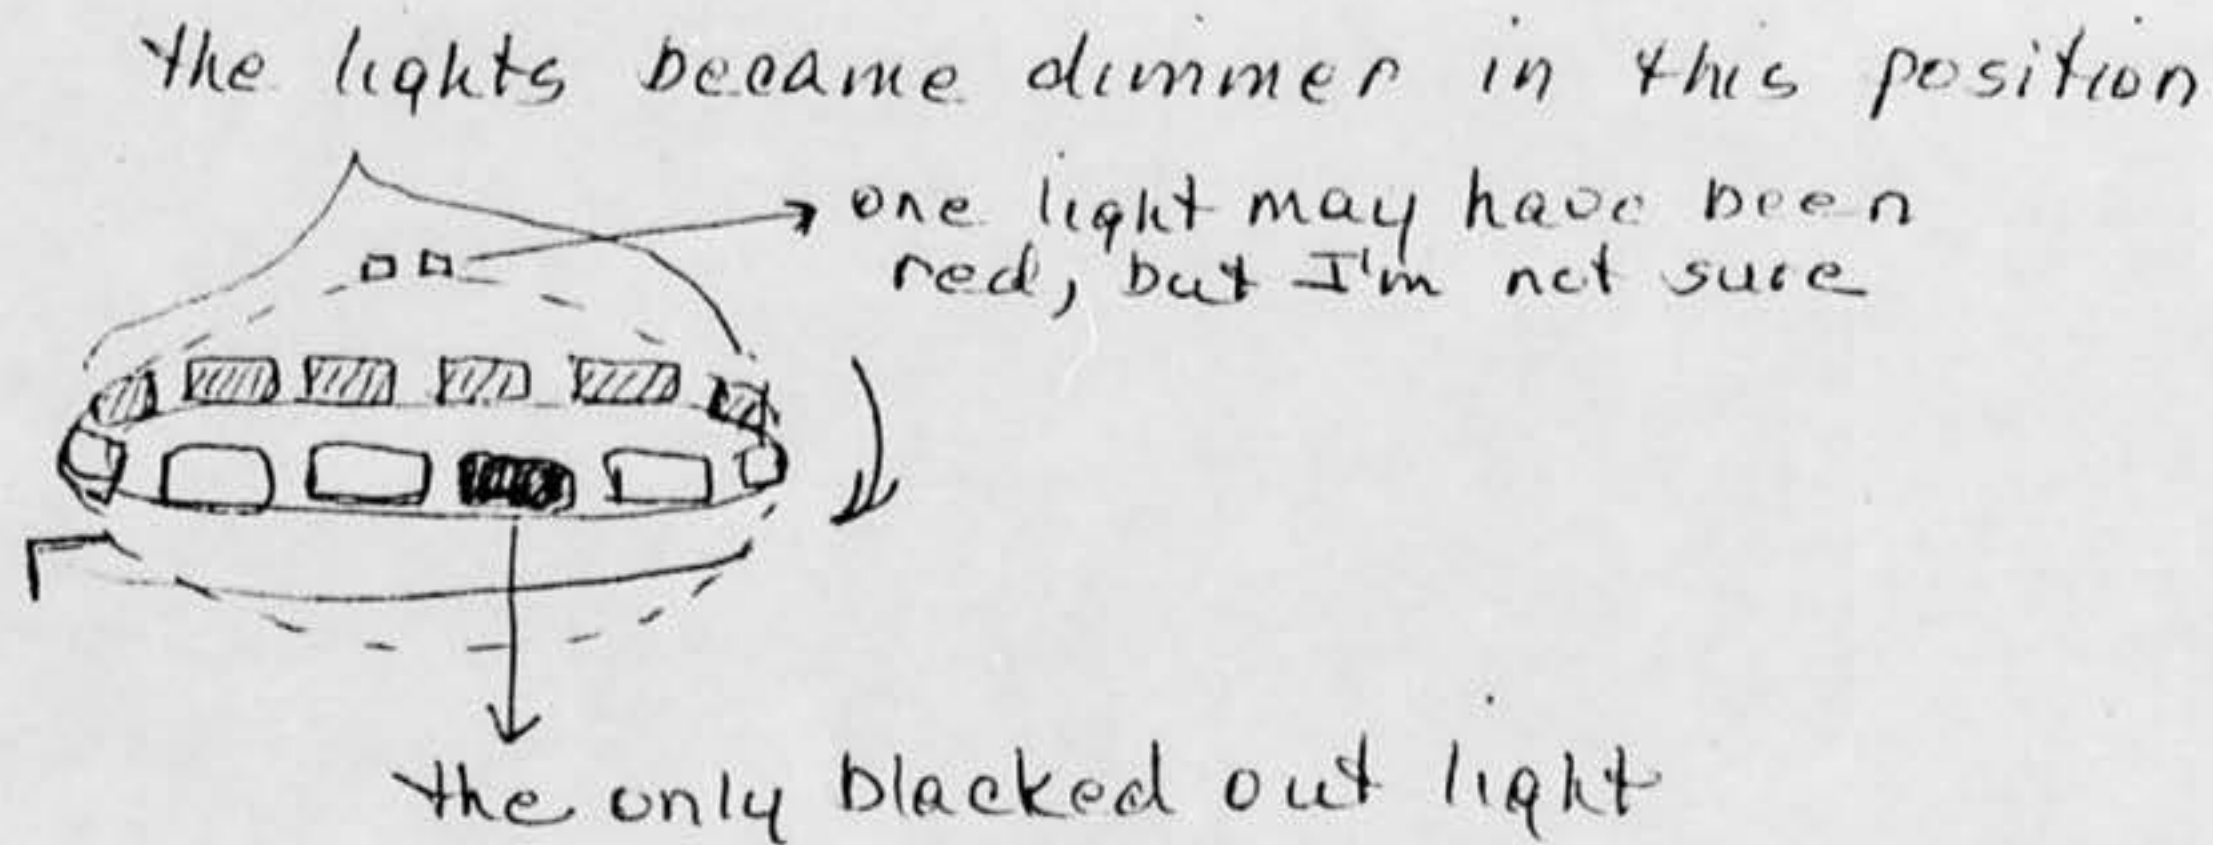 the lights became dimmer in this position
one light may have been
red, but I'm not sure
the only blacked out light